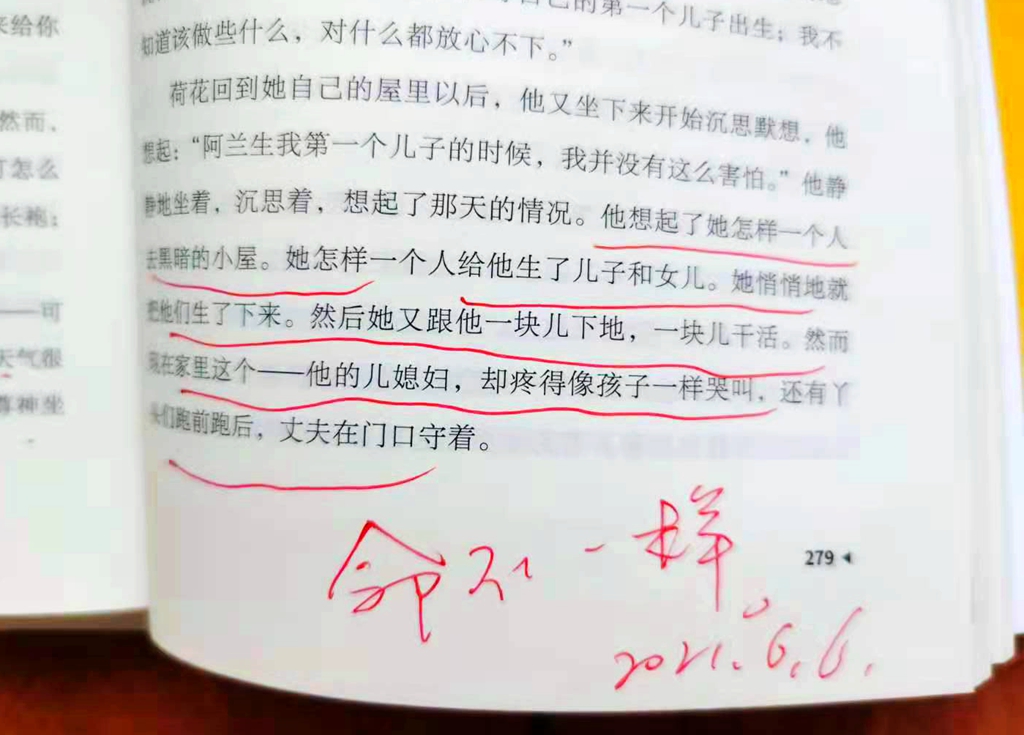 来给你
然而、
怎么
长袍;
——可
天气很
尊神坐
自己的第一个儿子出生;我不
知道该做些什么,对什么都放心不下。”
荷花回到她自己的屋里以后,他又坐下来开始沉思默想,他
想起:“阿兰生我第一个儿子的时候,我并没有这么害怕。”他静
静地坐着,沉思着,想起了那天的情况。他想起了她怎样一个人
去黑暗的小屋。她怎样一个人给他生了儿子和女儿。她悄悄地就
把他们生了下来。然后她又跟他一块儿下地,一块儿干活。然而
现在家里这个——他的儿媳妇,却疼得像孩子一样哭叫,还有丫
头们跑前跑后,丈夫在门口守着。
命不一样。
279
2021.6.6.